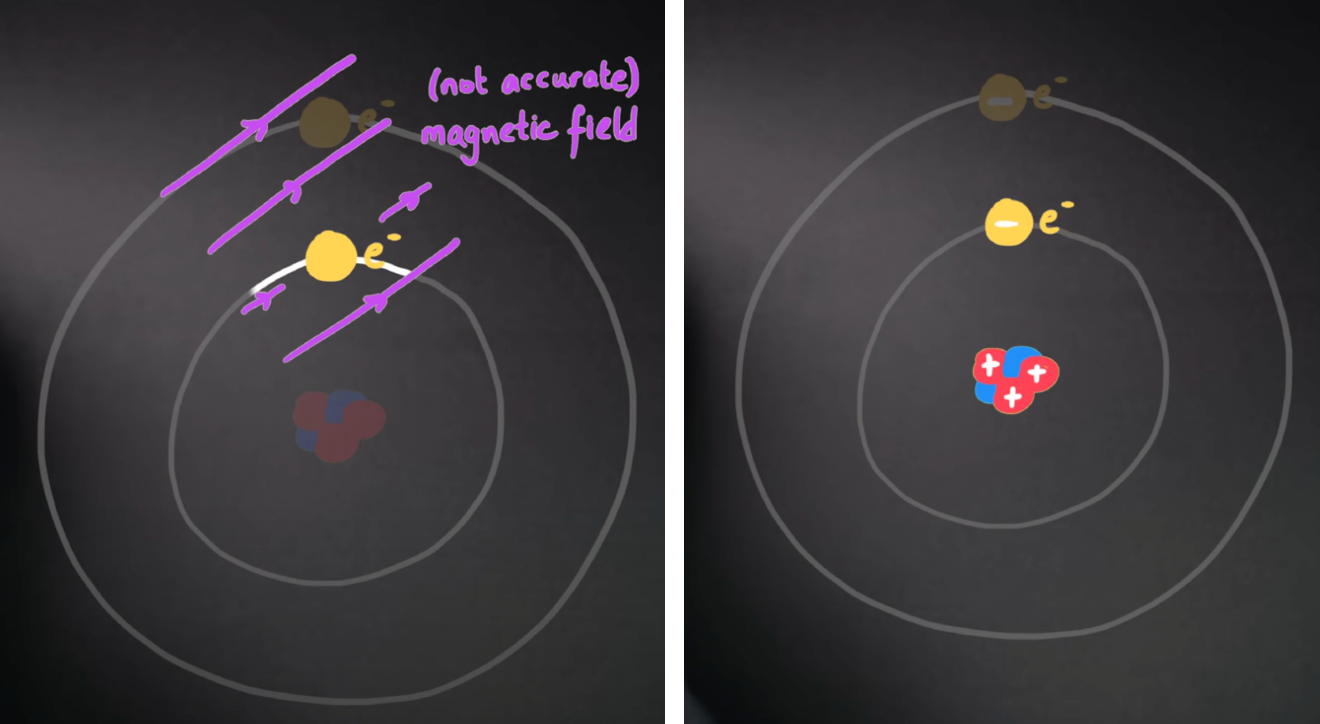 (not accurate)
magnetic field
e⁻
e⁻
e⁻
e⁻
+
+
+